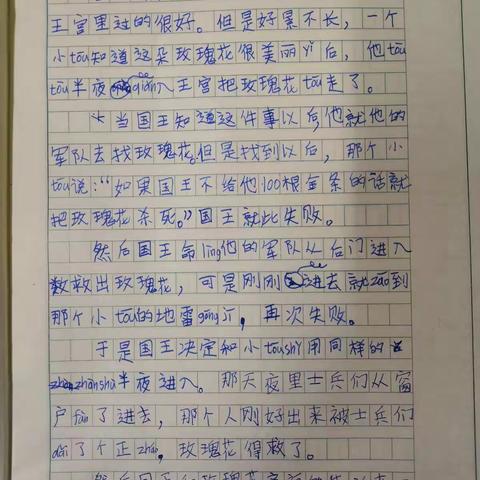 王宫里过的很好。但是好景不长，一个
小tōu知道这朵玫瑰花很美丽yǐ后，他tōu
tōu半夜qián入王宫把玫瑰花tōu走了。
当国王知道这件事以后，他就他的
军队去找玫瑰花。但是找到以后，那个小
tōu说：“如果国王不给他100根金条的话就
把玫瑰花杀死。”国王就此失败。
然后国王命lìng他的军队从后门进入
救出玫瑰花，可是刚刚进去就zāo到
那个小tōu的地雷gōng jī，再次失败。
于是国王决定和小tōu shǐ用同样的
zhàn shù半夜进入。那天夜里士兵们从窗
户fān了进去，那个人刚好出来被士兵们
dǎi了个正zháo，玫瑰花得救了。